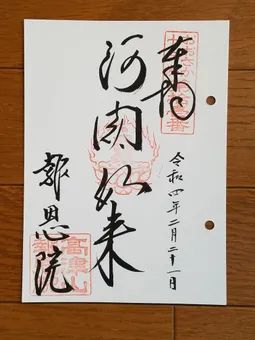 奉拝
令和四年二月二十一日
阿閦如来
報恩院
高津山